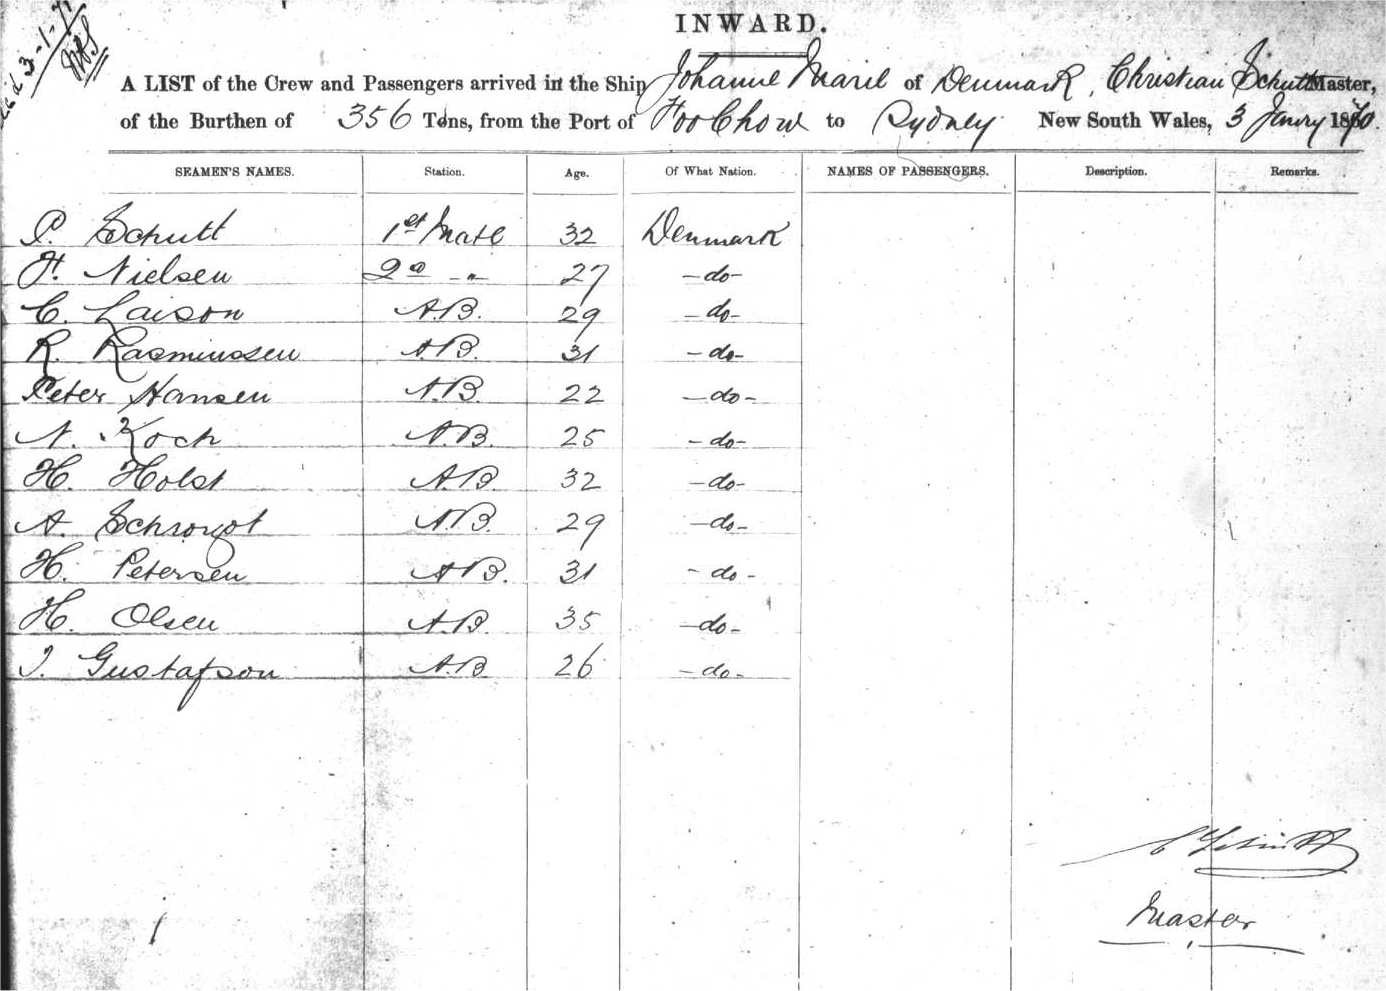 3-1-7
INWARD.
A LIST of the Crew and Passengers arrived in the Ship Johanne Marie of Denmark, Christian Schutt Master,
of the Burthen of 356 Tons, from the Port of Foo Chow to Sydney New South Wales, 3 Janry 1870.
SEAMEN'S NAMES. Station. Age. Of What Nation. NAMES OF PASSENGERS. Description. Remarks.
P. Schutt 1st Mate 32 Denmark
F. Nielsen 2d - " 27 - do -
C. Laison A.B. 29 - do -
R. Rasmussen A.B. 31 - do -
Peter Hansen A.B. 22 - do -
N. Koch A.B. 25 - do -
H. Holst A.B. 32 - do -
A. A.B. 29 - do -
H. Petersen A.B. 31 - do -
H. Olsen A.B. 35 - do -
J. Gustafson A.B. 26 - do -
C Schutt
Master